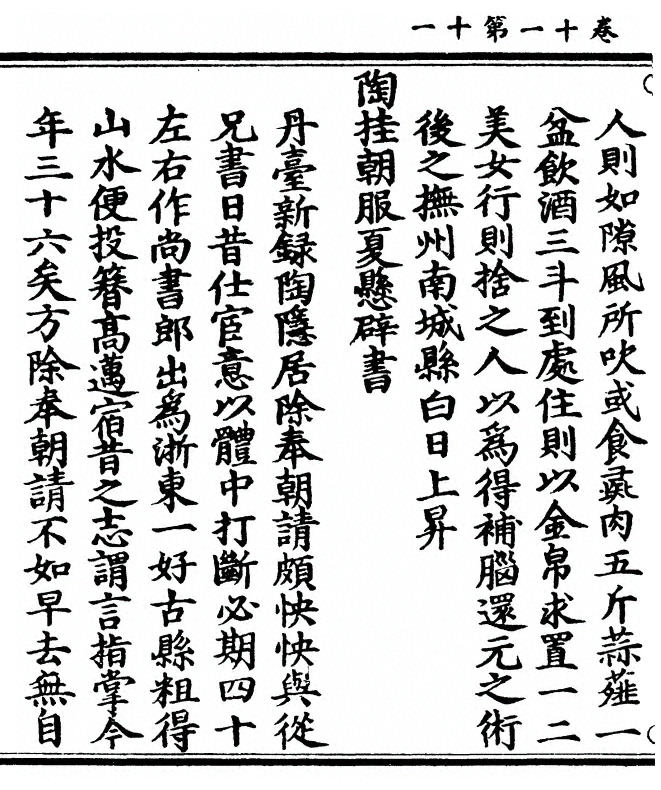 卷十一第十一
人則如隙風所吹或食彘肉五斤蒜薤一
盆飲酒三斗到處住則以金帛求置一二
美女行則捨之人以為得補腦還元之術
後之撫州南城縣白日上昇
陶挂朝服夏懸辟書
丹臺新録陶隱居除奉朝請頗怏怏與從
兄書曰昔仕宦意以體中打斷必期四十
左右作尚書郎出為浙東一好古縣粗得
山水便投簪高邁宿昔之志謂言指掌今
年三十六矣方除奉朝請不如早去無自